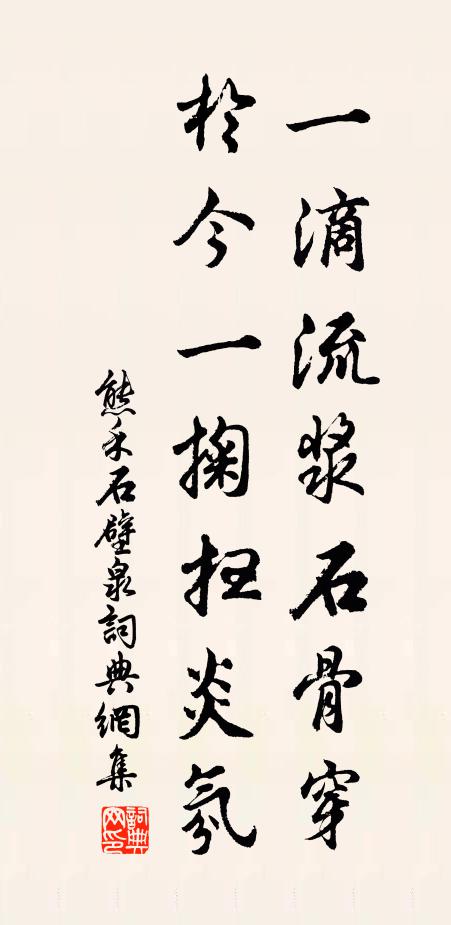 一滴流漿石骨穿
於今一掬抂炎氛
熊禾石壁泉詞典網集
詞典網印